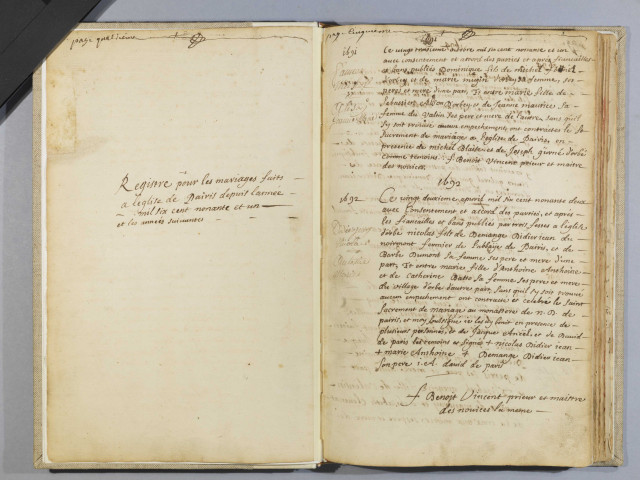 page quatrieme
Registre pour les mariages faits
a leglise de Pairis depuis lannee
mil six cent nonante et un
et les annees suivantes
page cinquieme
1691
1691
Ce vingt troisieme octobre mil six cent nonante et un
avec consentement et accord des parties et apres fiancailles
et bans publies Dominique fils de michel
et de marie sa femme, ses
peres et mere d'une part, Et entre marie fille de
Sebastien et de Jeanne maurice sa
femme ses pere et mere de l'autre, sans quil
sy soit trouvé aucun empechement, ont contractés le Sa
crement de mariage a leglise de Pairis, en
presence de michel Blaise et de Joseph
comme temoins. f. Benoit Vincent prieur et maitre
des novices
1692
1692
Ce vingt deuxieme apvril mil six cent nonante deux
avec Consentement et accord des parties, et apres
les fiancailles et bans publies par trois festes a leglise
d'orbé nicolas fils de Demange Didier jean du
noirgout fermier de labbaye de Pairis, et de
Barbe Dumont sa femme ses pere et mere d'une
part, Et entre marie fille d'Anthoine Anthoine
et de Catherine Batto sa femme ses pere et mere
du village d'orbé d'autre part, sans quil sy soit trouvé
aucun empechement ont contracté et celebré le saint
Sacrement de mariage au monastere de N. D. de
parris, et moy soubsigné les ay benit en presence de
plusieurs personnes, et de Jacques Ancel et de David
de paris les temoins et signés + nicolas Didier jean
+ marie Anthoine + Demange Didier jean
son pere david de paris
f. Benoit Vincent prieur et maitre
des novices la meme